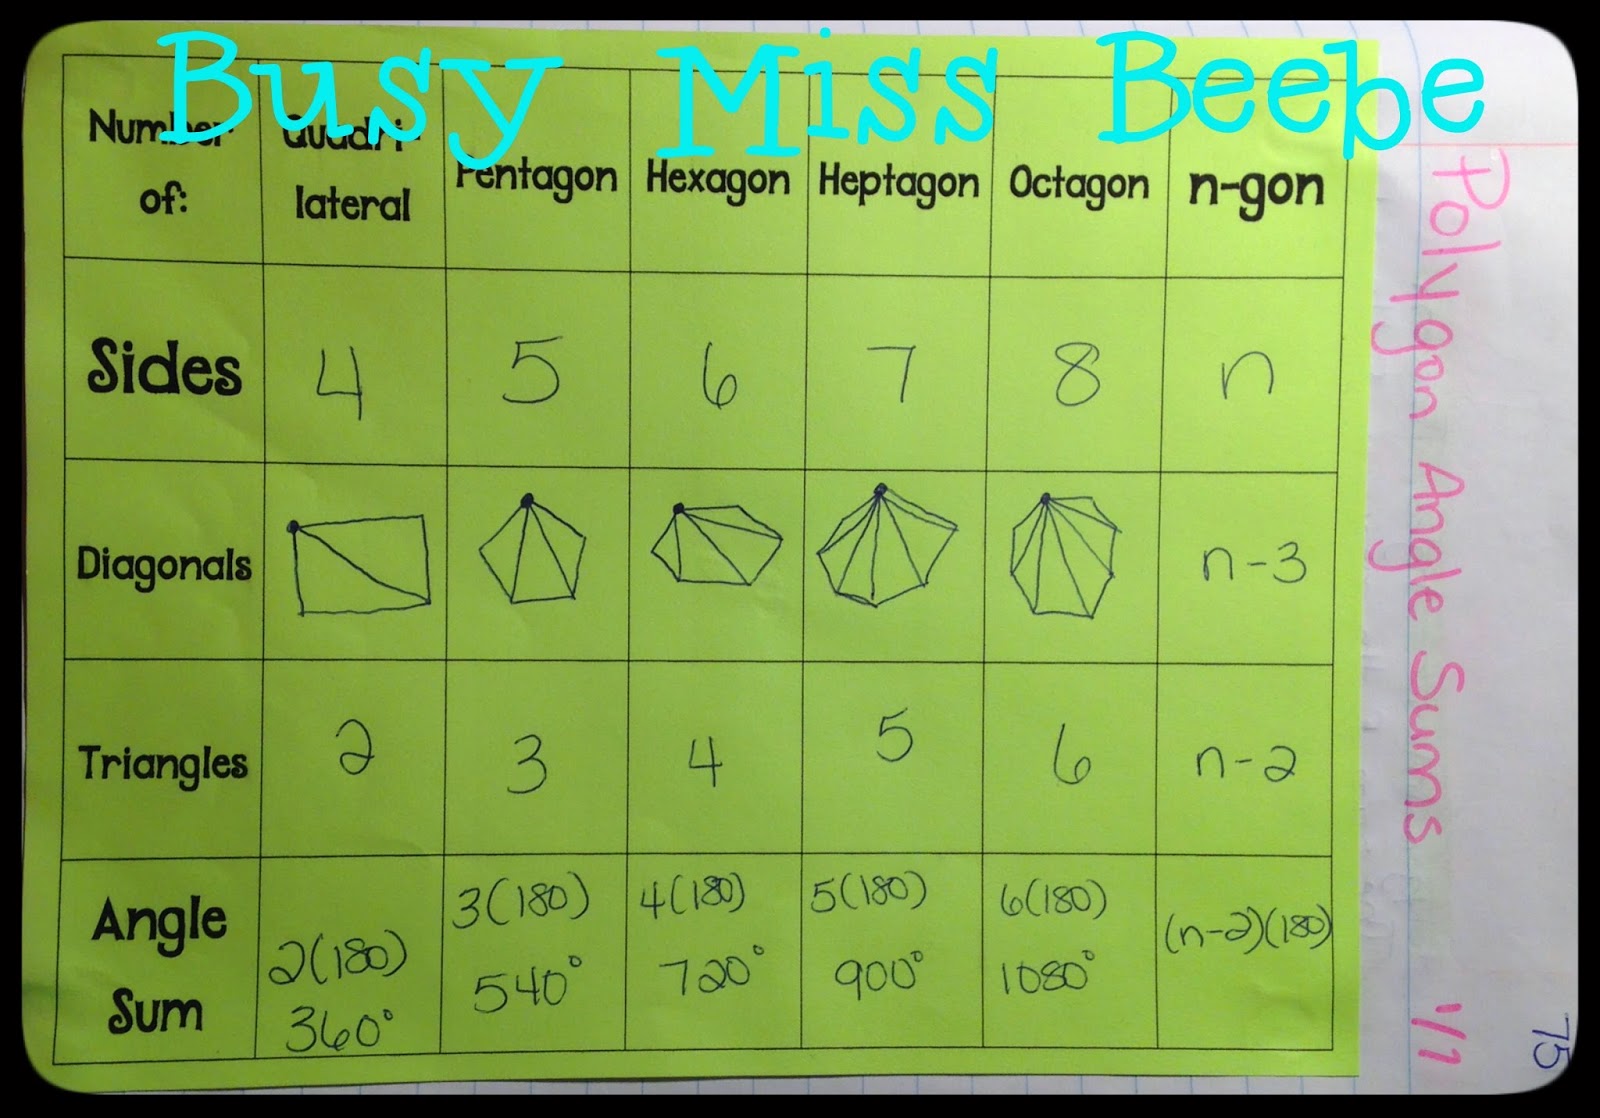 Busy Miss Beebe
Number of: Quadri-lateral Pentagon Hexagon Heptagon Octagon n-gon
Sides 4 5 6 7 8 n
Diagonals n-3
Triangles 2 3 4 5 6 n-2
Angle Sum 2(180) 360° 3(180) 540° 4(180) 720° 5(180) 900° 6(180) 1080° (n-2)(180)
Polygon Angle Sums 1/7
75